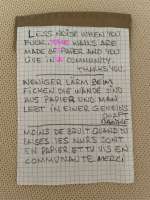 LESS NOISE WHEN YOU
FUCK. THE WALLS ARE
MADE OF PAPER AND YOU
LIVE IN A COMMUNITY.
THANKS YOU.
WENIGER LÄRM BEIM
FICKEN. DIE WÄNDE SIND
AUS PAPIER UND MAN
LEBT IN EINER GEMEINS
CHAFT
MOINS DE BRUIT QUAND TU
BAISES. LES MURS SONT
EN PAPIER ET TU VIS EN
COMMUNAUTE. MERCI